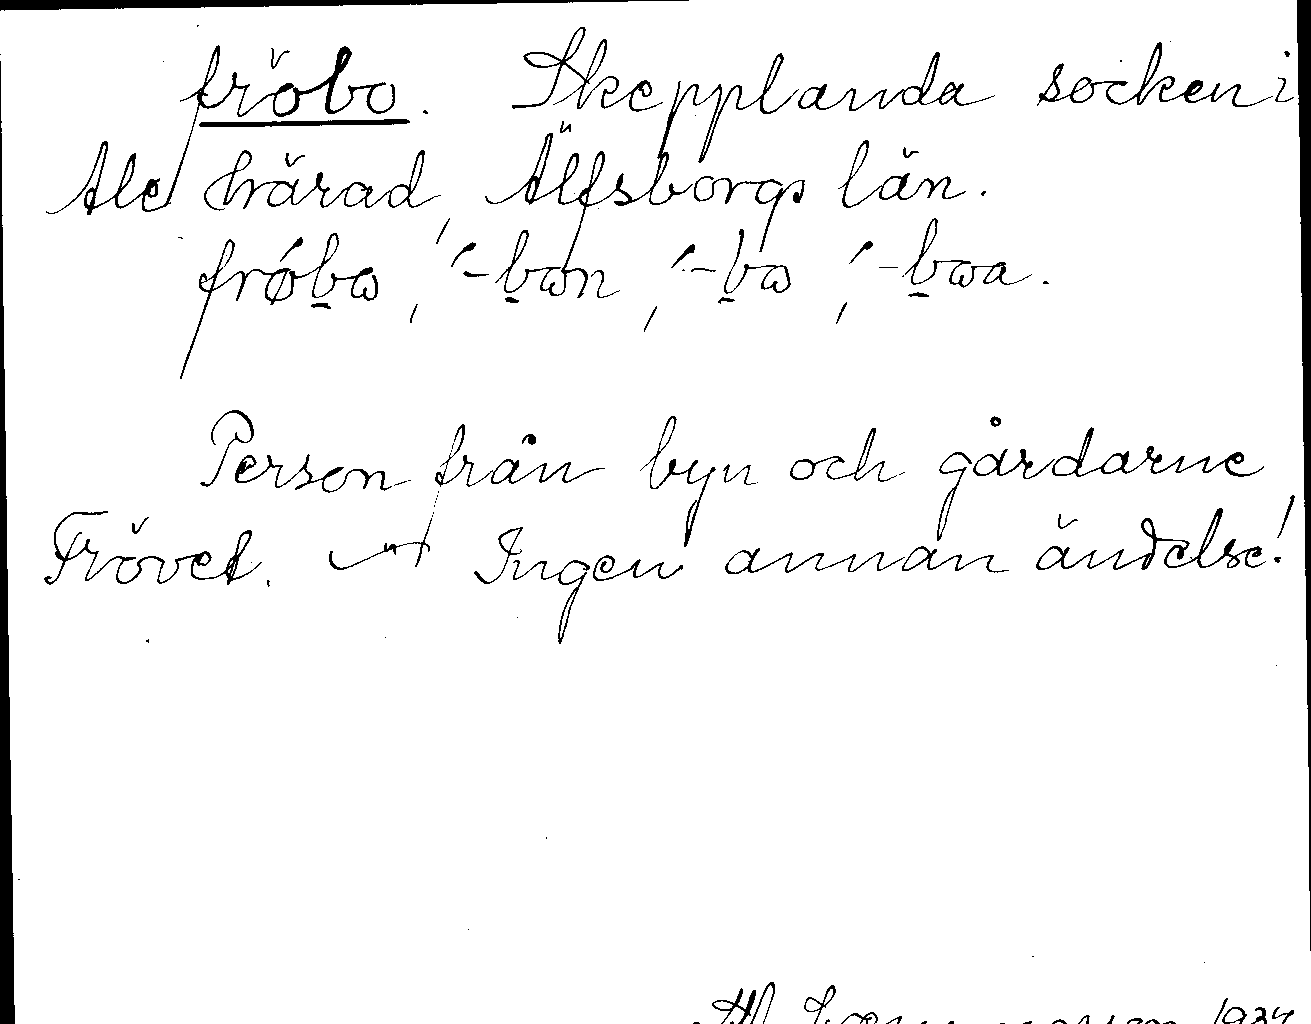 fröbo. Skepplanda socken i
Ale härad, Älfsborgs län.
frøbω, ʹ-bωn, ʹ-bω, ʹ-bωa.
Person från byn och gårdarne
Frövet. — Ingen annan ändelse!
1934